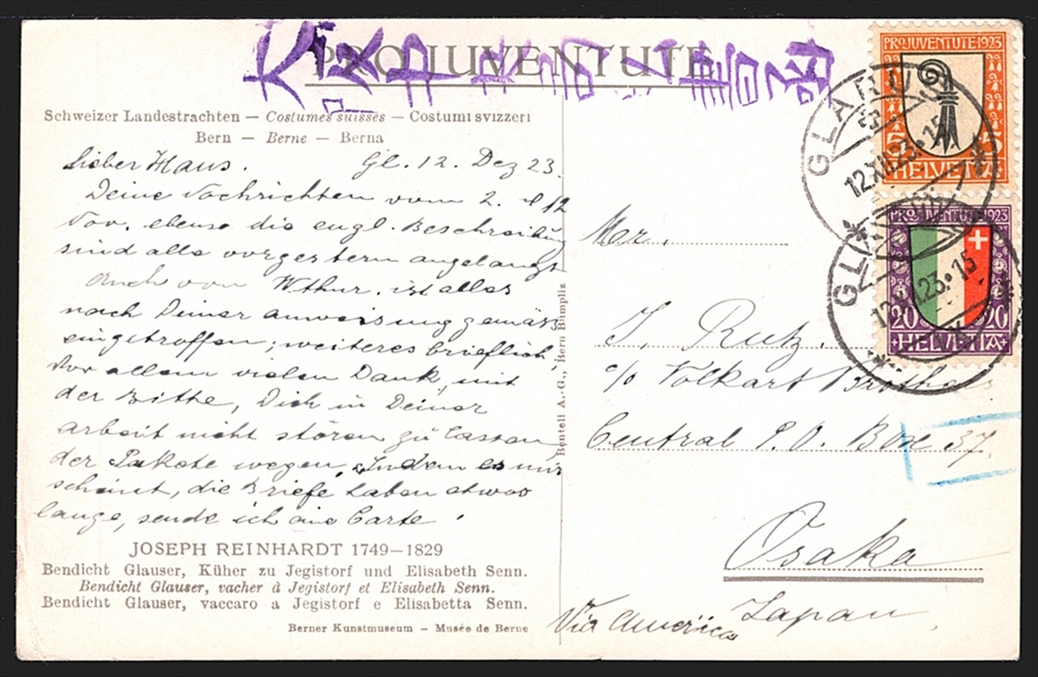 PRO JUVENTUTE
Schweizer Landestrachten – Costumes suisses – Costumi svizzeri
Bern – Berne – Berna
Lieber Hans. Gl. 12. Dez 23.
Deine Nachrichten vom 2. & 12
Nov. ebenso die engl. Beschreibung
sind alle vorgestern angelangt
Auch von W'thur. ist alles
nach Deiner anweisung gemäss
eingetroffen; weiteres brieflich,
Vor allem vielen Dank, mit
der Bitte, Dich in Deiner
arbeit nicht stören zu lassen
der Pakete wegen, Indem es mir
scheint, die Briefe haben etwas
lange, sende ich eine Carte.
JOSEPH REINHARDT 1749–1829
Bendicht Glauser, Küher zu Jegistorf und Elisabeth Senn.
Bendicht Glauser, vacher à Jegistorf et Elisabeth Senn.
Bendicht Glauser, vaccaro a Jegistorf e Elisabetta Senn.
Berner Kunstmuseum – Musée de Berne
Benteli A.-G., Bern Bümpliz
PRO JUVENTUTE 1923
5 5
HELVETIA
PRO JUVENTUTE 1923
20 20
HELVETIA
GLARUS
12.XII.23.15
GL
12.XII.23.15
Mr.
J. Rutz.
c/o Volkart Brothers
Central P.O. Box 37.
Osaka
Japan.
Via America